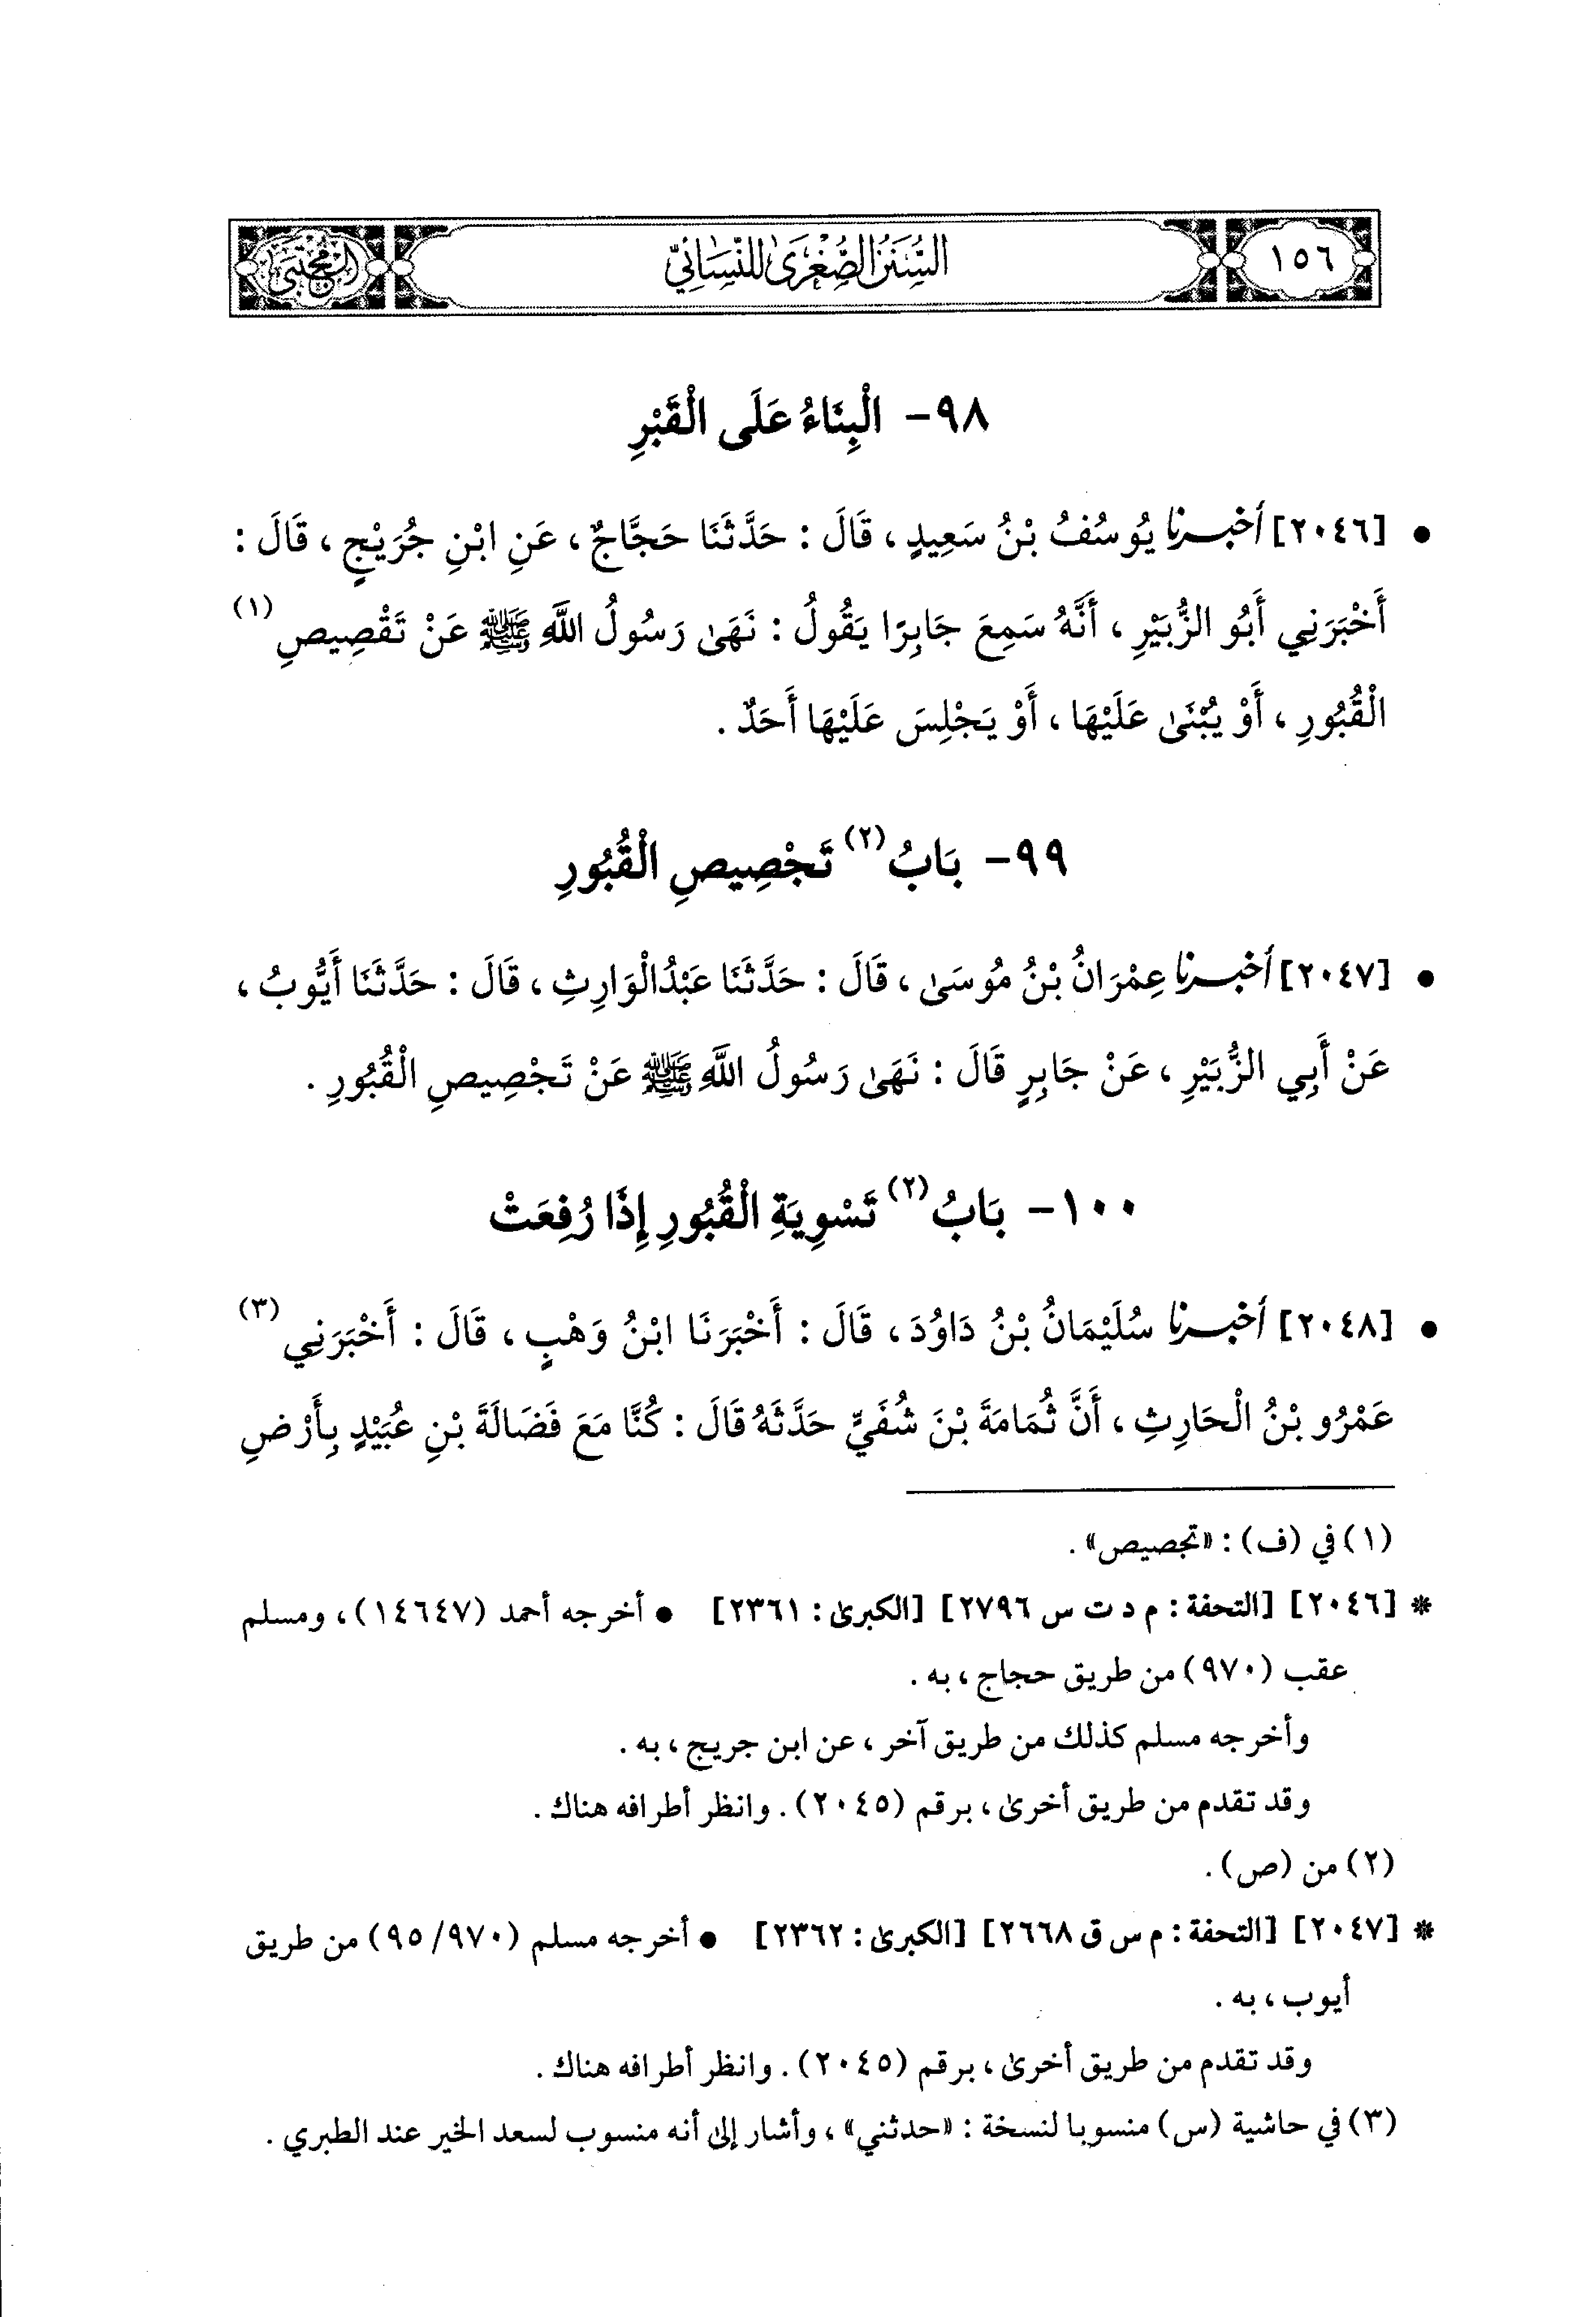 ١٥٦
السُّنَنُ الصُّغْرَىٰ لِلنَّسَائِيِّ
المجتبى
٩٨- الْبِنَاءُ عَلَى الْقَبْرِ
• [٢٠٤٦] أخبرنا يُوسُفُ بْنُ سَعِيدٍ ، قَالَ : حَدَّثَنَا حَجَّاجٌ ، عَنِ ابْنِ جُرَيْجٍ ، قَالَ :
أَخْبَرَنِي أَبُو الزُّبَيْرِ ، أَنَّهُ سَمِعَ جَابِرًا يَقُولُ : نَهَىٰ رَسُولُ اللَّهِ ﷺ عَنْ تَقْصِيصِ (١)
الْقُبُورِ ، أَوْ يُبْنَىٰ عَلَيْهَا ، أَوْ يَجْلِسَ عَلَيْهَا أَحَدٌ .
٩٩- بَابُ (٢) تَجْصِيصِ الْقُبُورِ
• [٢٠٤٧] أخبرنا عِمْرَانُ بْنُ مُوسَىٰ ، قَالَ : حَدَّثَنَا عَبْدُالْوَارِثِ ، قَالَ : حَدَّثَنَا أَيُّوبُ ،
عَنْ أَبِي الزُّبَيْرِ ، عَنْ جَابِرٍ قَالَ : نَهَىٰ رَسُولُ اللَّهِ ﷺ عَنْ تَجْصِيصِ الْقُبُورِ .
١٠٠- بَابُ (٢) تَسْوِيَةِ الْقُبُورِ إِذَا رُفِعَتْ
• [٢٠٤٨] أخبرنا سُلَيْمَانُ بْنُ دَاوُدَ ، قَالَ : أَخْبَرَنَا ابْنُ وَهْبٍ ، قَالَ : أَخْبَرَنِي (٣)
عَمْرُو بْنُ الْحَارِثِ ، أَنَّ ثُمَامَةَ بْنَ شُفَيٍّ حَدَّثَهُ قَالَ : كُنَّا مَعَ فَضَالَةَ بْنِ عُبَيْدٍ بِأَرْضِ
(١) في (ف) : «تجصيص» .
* [٢٠٤٦] [التحفة : م د ت س ٢٧٩٦] [الكبرىٰ : ٢٣٦١] • أخرجه أحمد (١٤٦٤٧) ، ومسلم
عقب (٩٧٠) من طريق حجاج ، به .
وأخرجه مسلم كذلك من طريق آخر ، عن ابن جريج ، به .
وقد تقدم من طريق أخرىٰ ، برقم (٢٠٤٥) . وانظر أطرافه هناك .
(٢) من (ص) .
* [٢٠٤٧] [التحفة : م س ق ٢٦٦٨] [الكبرىٰ : ٢٣٦٢] • أخرجه مسلم (٩٥/٩٧٠) من طريق
أيوب ، به .
وقد تقدم من طريق أخرىٰ ، برقم (٢٠٤٥) . وانظر أطرافه هناك .
(٣) في حاشية (س) منسوبا لنسخة : «حدثني» ، وأشار إلىٰ أنه منسوب لسعد الخير عند الطبري .